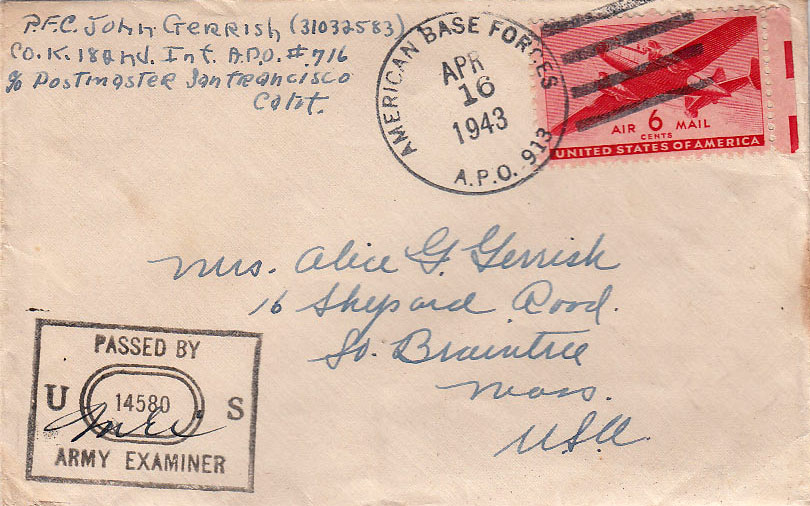 P.F.C. John Gerrish (31032583)
Co. K. 182nd. Inf. A.P.O. #.716
c/o Postmaster San Francisco
Calif.
AMERICAN BASE FORCES
APR
16
1943
A.P.O. 913
AIR 6 MAIL
CENTS
UNITED STATES OF AMERICA
Mrs. Alice G. Gerrish
16 Shepard Road.
So. Braintree
Mass.
U.S.A.
PASSED BY
U 14580 S
ARMY EXAMINER